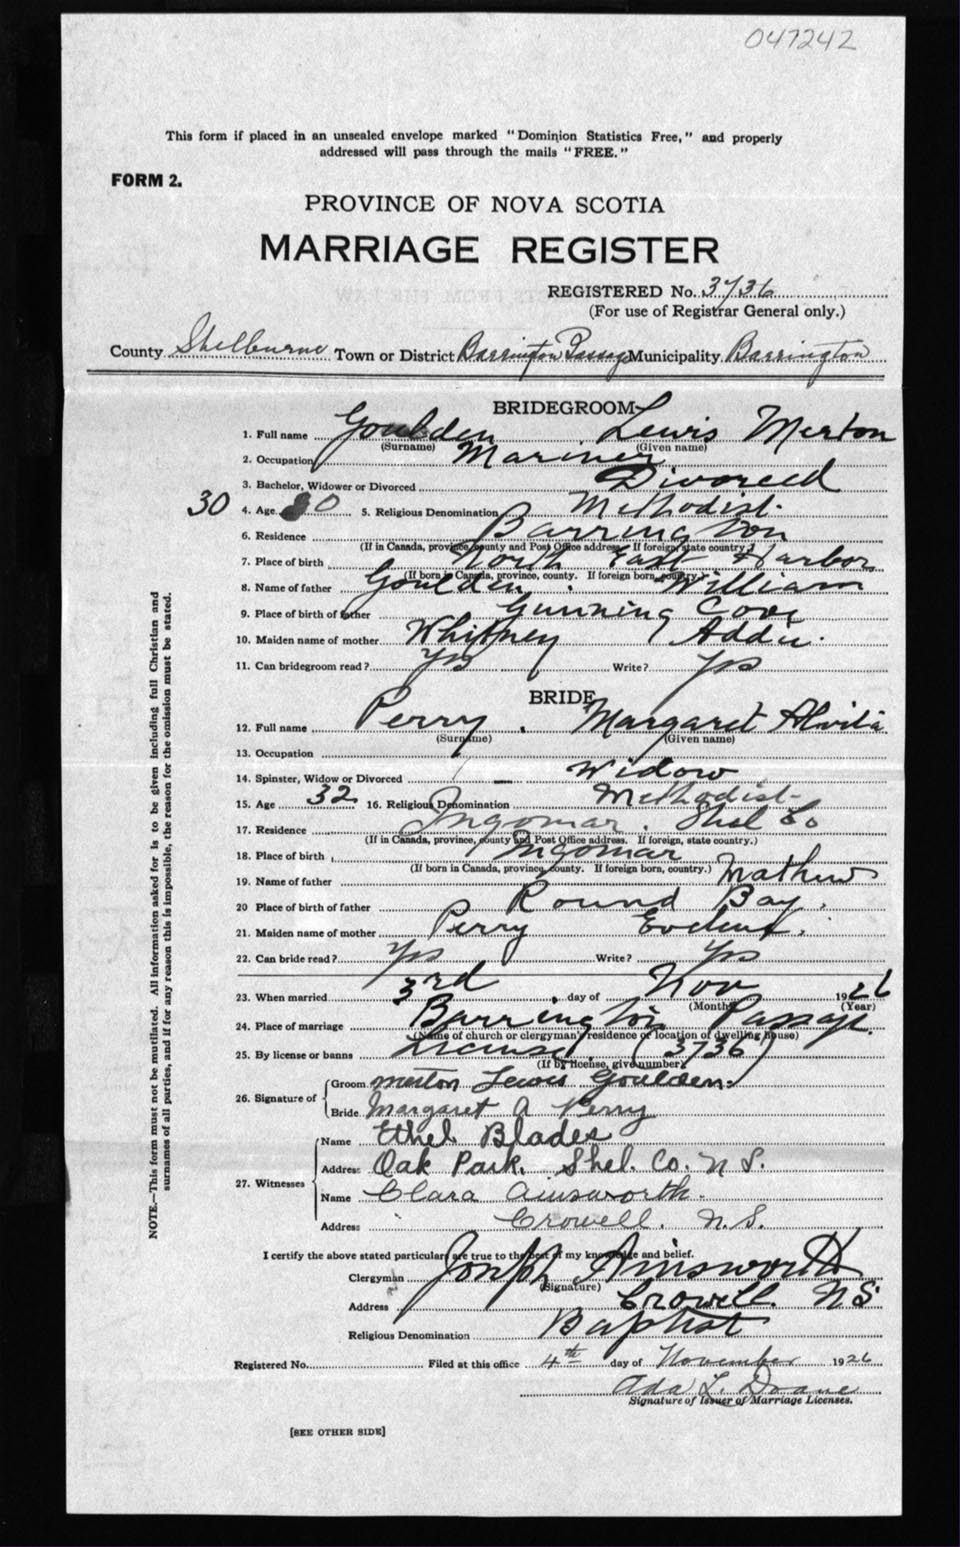 047242
This form if placed in an unsealed envelope marked "Dominion Statistics Free," and properly
addressed will pass through the mails "FREE."
FORM 2.
PROVINCE OF NOVA SCOTIA
MARRIAGE REGISTER
REGISTERED No. 3736
(For use of Registrar General only.)
County Shelburne Town or District Barrington Passage Municipality. Barrington
BRIDEGROOM
1. Full name Goulden Lewis Merton
(Surname) (Given name)
2. Occupation Mariner
3. Bachelor, Widower or Divorced Divorced
30 4. Age 30 5. Religious Denomination Methodist.
6. Residence Barrington
(If in Canada, province, county and Post Office address. If foreign, state country.)
7. Place of birth North East Harbor
(If born in Canada, province, county. If foreign born, country.)
8. Name of father Goulden. William
9. Place of birth of father Gunning Cove
10. Maiden name of mother Whitney Addie.
11. Can bridegroom read? Yes Write? Yes
BRIDE
12. Full name Perry. Margaret Alvita
(Surname) (Given name)
13. Occupation
14. Spinster, Widow or Divorced Widow
15. Age 32 16. Religious Denomination Methodist
17. Residence Ingomar. Shel Co
(If in Canada, province, county and Post Office address. If foreign, state country.)
18. Place of birth Ingomar
(If born in Canada, province, county. If foreign born, country.)
19. Name of father Mathew
20 Place of birth of father Round Bay.
21. Maiden name of mother Perry
22. Can bride read? Yes Write? Yes
23. When married 3rd day of Nov 1926
(Month) (Year)
24. Place of marriage Barrington Passage.
(Name of church or clergyman's residence or location of dwelling house)
25. By license or banns License. (3736)
(If by license, give number)
26. Signature of
Groom Merton Lewis Goulden.
Bride Margaret A Perry
27. Witnesses
Name Ethel Blades
Address Oak Park. Shel. Co. N S.
Name Clara Ainsworth.
Address Crowell. N.S.
I certify the above stated particulars are true to the best of my knowledge and belief.
Clergyman Joseph Ainsworth
(Signature)
Address Crowell. N S.
Religious Denomination Baptist
Registered No. Filed at this office 4th day of November 1926
Ada L. Doane
Signature of Issuer of Marriage Licenses.
[SEE OTHER SIDE]
NOTE.—This form must not be mutilated. All information asked for is to be given including full Christian and
surnames of all parties, and if for any reason this is impossible, the reason for the omission must be stated.